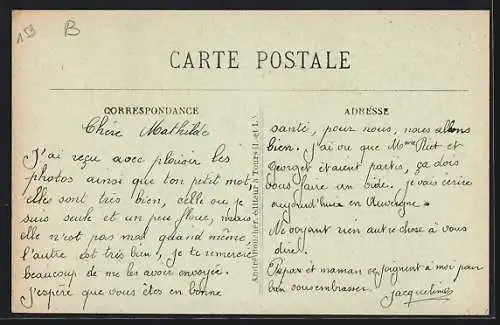 153 B
CARTE POSTALE
CORRESPONDANCE
Chère Mathilde
J'ai reçu avec plaisir les
photos ainsi que ton petit mot,
elles sont très bien, celle ou je
suis seule et un peu floue, mais
elle n'est pas mal quand même,
l'autre est très bien, je te remercie
beaucoup de me les avoir envoyée.
J'espère que vous êtes en bonne
André éditeur à Tours (I.-et-L.)
ADRESSE
santé, pour nous, nous allons
bien. J'ai vu que Mme et
Georges étaient partis, ça dois
vous faire un vide. je vais écrire
aujourd'hui en Auvergne.
Ne voyant rien autre chose à vous
dire.
Papa et maman se joignent à moi pour
bien vous embrasser.
Jacqueline